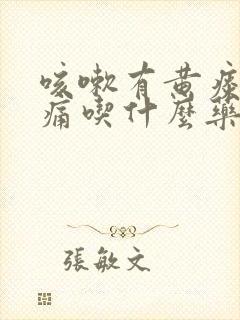 咳嗽有黄痰
痛喫什麼藥
張敏文